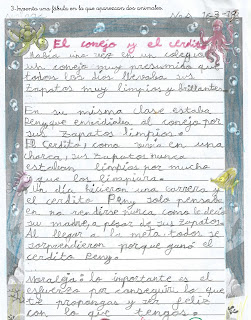 3. Inventa una fábula en la que aparezcan dos animales.
El conejo y el cerdito
Había una vez en un colegio
un conejo muy presumido que
todos los días llevaba sus
zapatos muy limpios y brillantes.
En su misma clase estaba
Peny que envidiaba al conejo por
sus zapatos limpios.
El Cerdito, como vivía en una
charca, sus zapatos nunca
estaban limpios por mucho
que los limpiara.
Un día hicieron una carrera y
el cerdito Peny solo pensaba
en no rendirse nunca como le decía
su madre, a pesar de sus zapatos.
Al llegar a la meta todos se
sorprendieron porque ganó el
cerdito Beny.
Moraleja: lo importante es el
esfuerzo por conseguir lo que
te propongas y ser feliz
con lo que tengas.